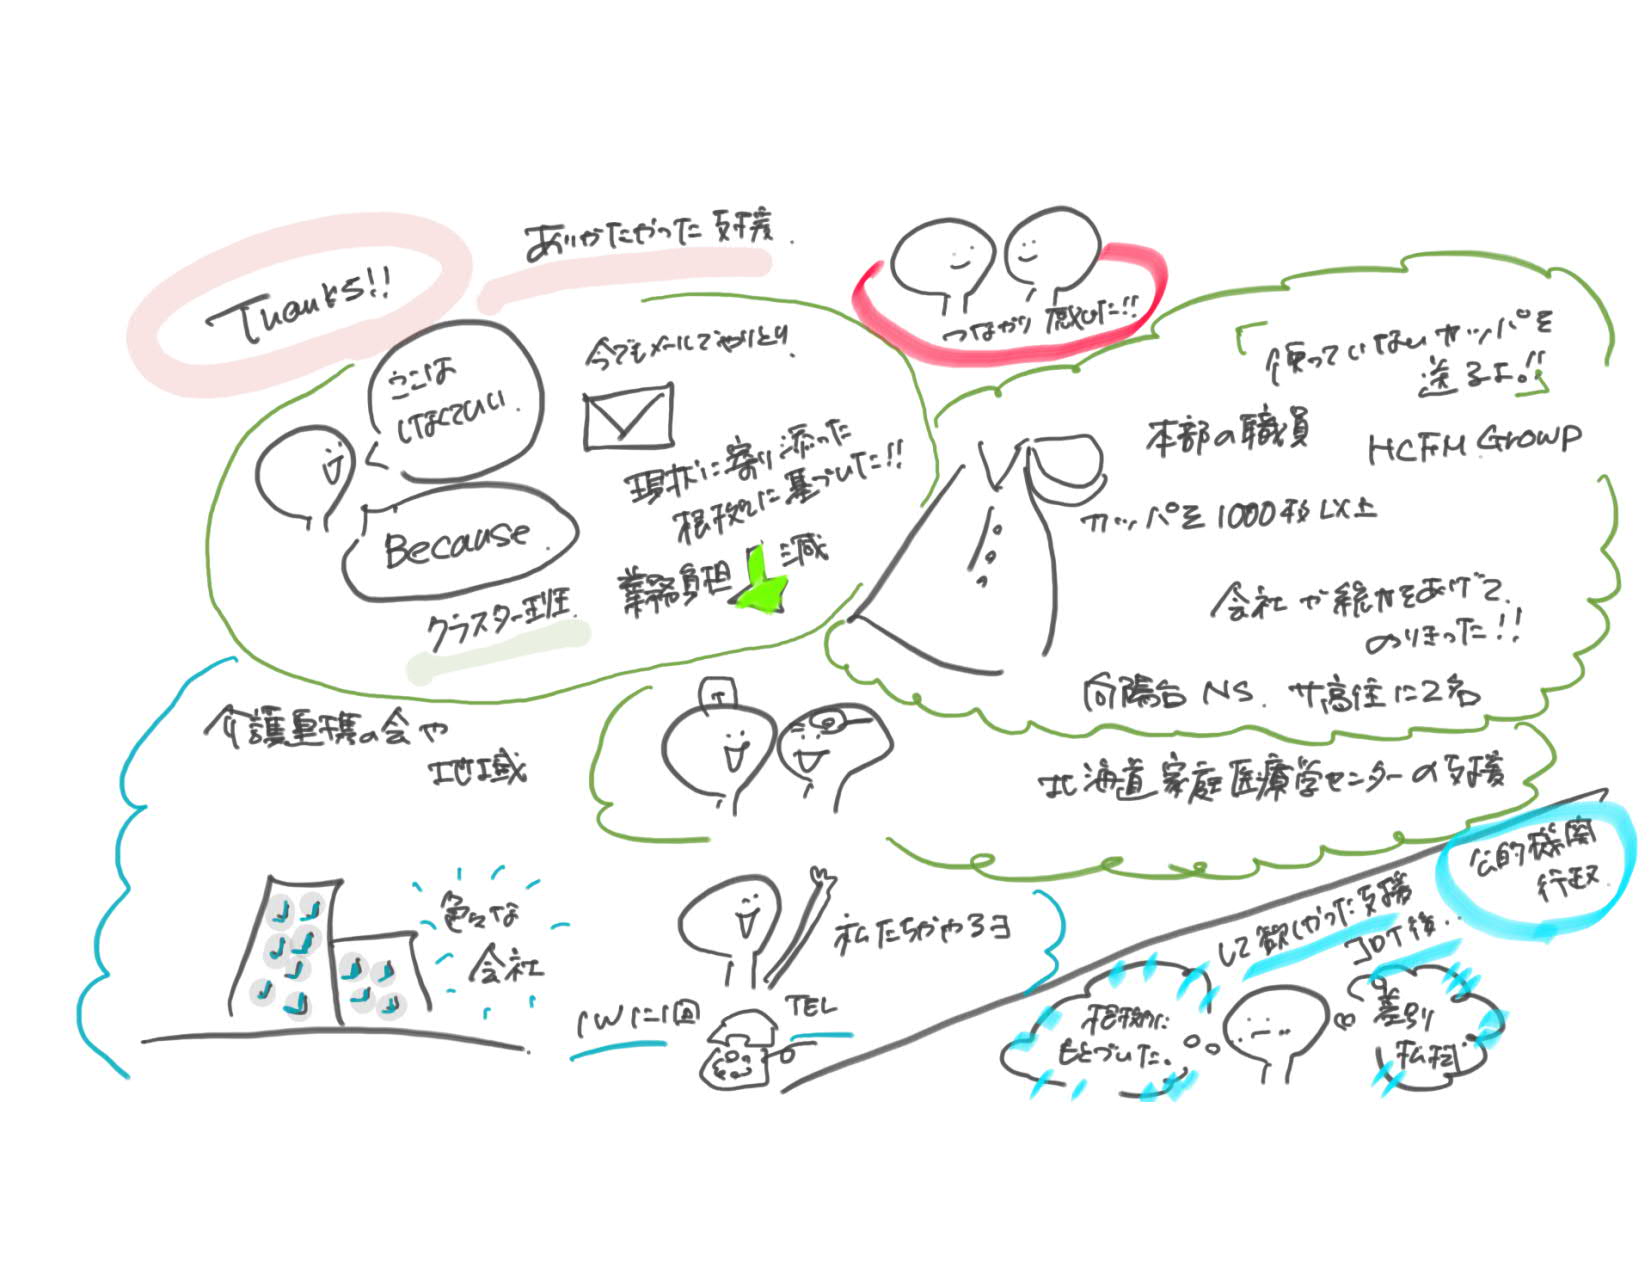 Thanks!!
ありがたかった支援.
つながり感じた!!
ここは
しなくていい.
Because.
クラスター班.
今でもメールでやりとり.
現状に寄り添った
根拠に基づいた!!
業務負担 減
「使っていないカッパを
送るよ。!!」
本部の職員
HCFM.Group
カッパを1000枚以上
会社が総力をあげて.
のりきった!!
向陽台NS. サ高住に2名
北海道家庭医療学センターの支援
介護連携の会や
地域
色々な
会社
私たちがやるヨ
1Wに1回
TEL
公的機関
行政.
して欲しかった支援
コロナ後..
根拠に
もとづいた.
差別